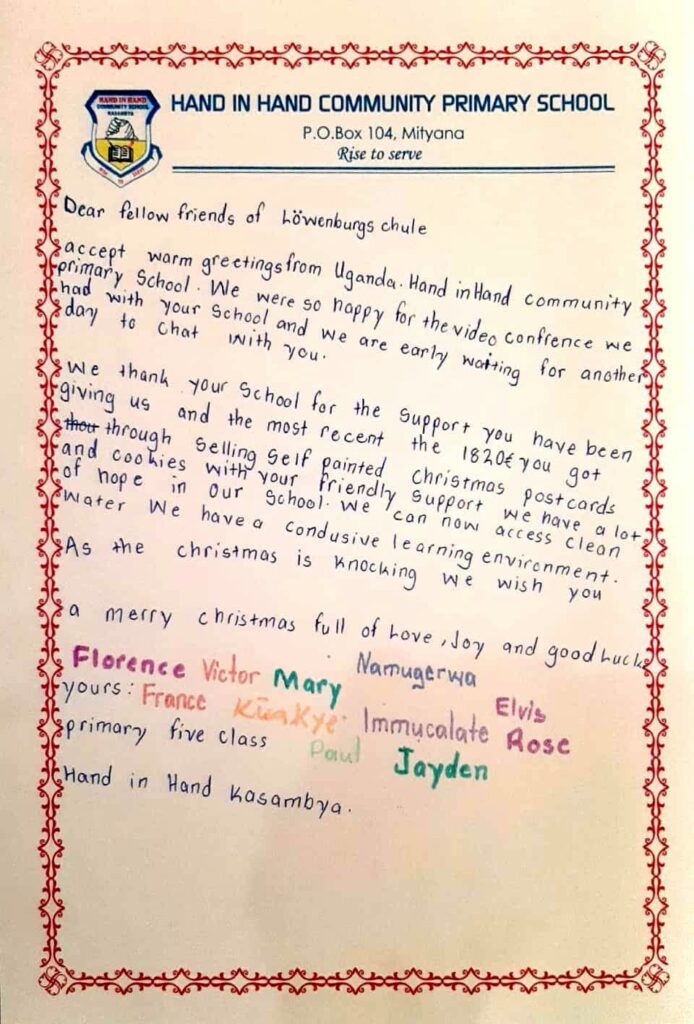 HAND IN HAND
COMMUNITY SCHOOL
KASAMBYA
RISE TO SERVE
HAND IN HAND COMMUNITY PRIMARY SCHOOL
P.O.Box 104, Mityana
Rise to serve
Dear fellow friends of Löwenburgschule
accept warm greetings from Uganda. Hand in Hand community
primary School. We were so happy for the video confrence we
had with your School and we are early waiting for another
day to chat with you.
We thank your School for the Support you have been
giving us and the most recent the 1820€ you got
thou through selling self painted christmas postcards
and cookies with your friendly Support we have a lot
of hope in our School. We can now access clean
water We have a condusive learning environment.
As the christmas is knocking we wish you
a merry christmas full of Love, Joy and good Luck
Florence Victor Mary Namugerwa Elvis
yours: France Immucalate Rose
primary five class Paul Jayden
Hand in Hand Kasambya.